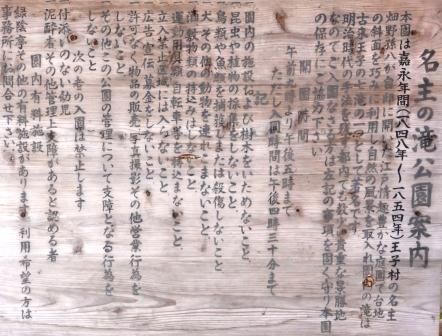 名主の滝公園案内
本園は嘉永年間(一八四八年~一八五四年)王子村の名主
畑野孫八が自邸に開いた江戸情趣豊かな庭園で台地
の斜面を巧みに利用し自然の風景を取入れ園内の滝は
古来王子の七滝の一つとして著名です
明治時代の手法を残す都内でも数少ない貴重な景勝地
なのでご入園なさる方は左記の事項を固く守り本園
の保存にご協力下さい
開園時間
午前九時より午後五時まで
ただし入園時間は午後四時三十分まで
記
一 園内の施設および樹木をいためないこと
一 昆虫や植物の採集をしないこと
一 鳥類や魚類を捕獲しまたは殺傷しないこと
一 犬その他の動物を連れこまないこと
一 酒穀物類の持込みはしないこと
一 運動用具類自転車等を持込まないこと
一 立入禁止区域には入らないこと
一 広告宣伝募金をしないこと
一 許可なく物品の販売写真撮影その他営業行為を
しないこと
一 その他この公園の管理について支障となる行為を
しないこと
次の者の入園は禁止します
一 付添いのない幼児
一 泥酔者その他管理上支障があると認める者
園内有料施設
緑陰亭その他の有料施設があります 利用ご希望の方は
事務所にお問合せ下さい。